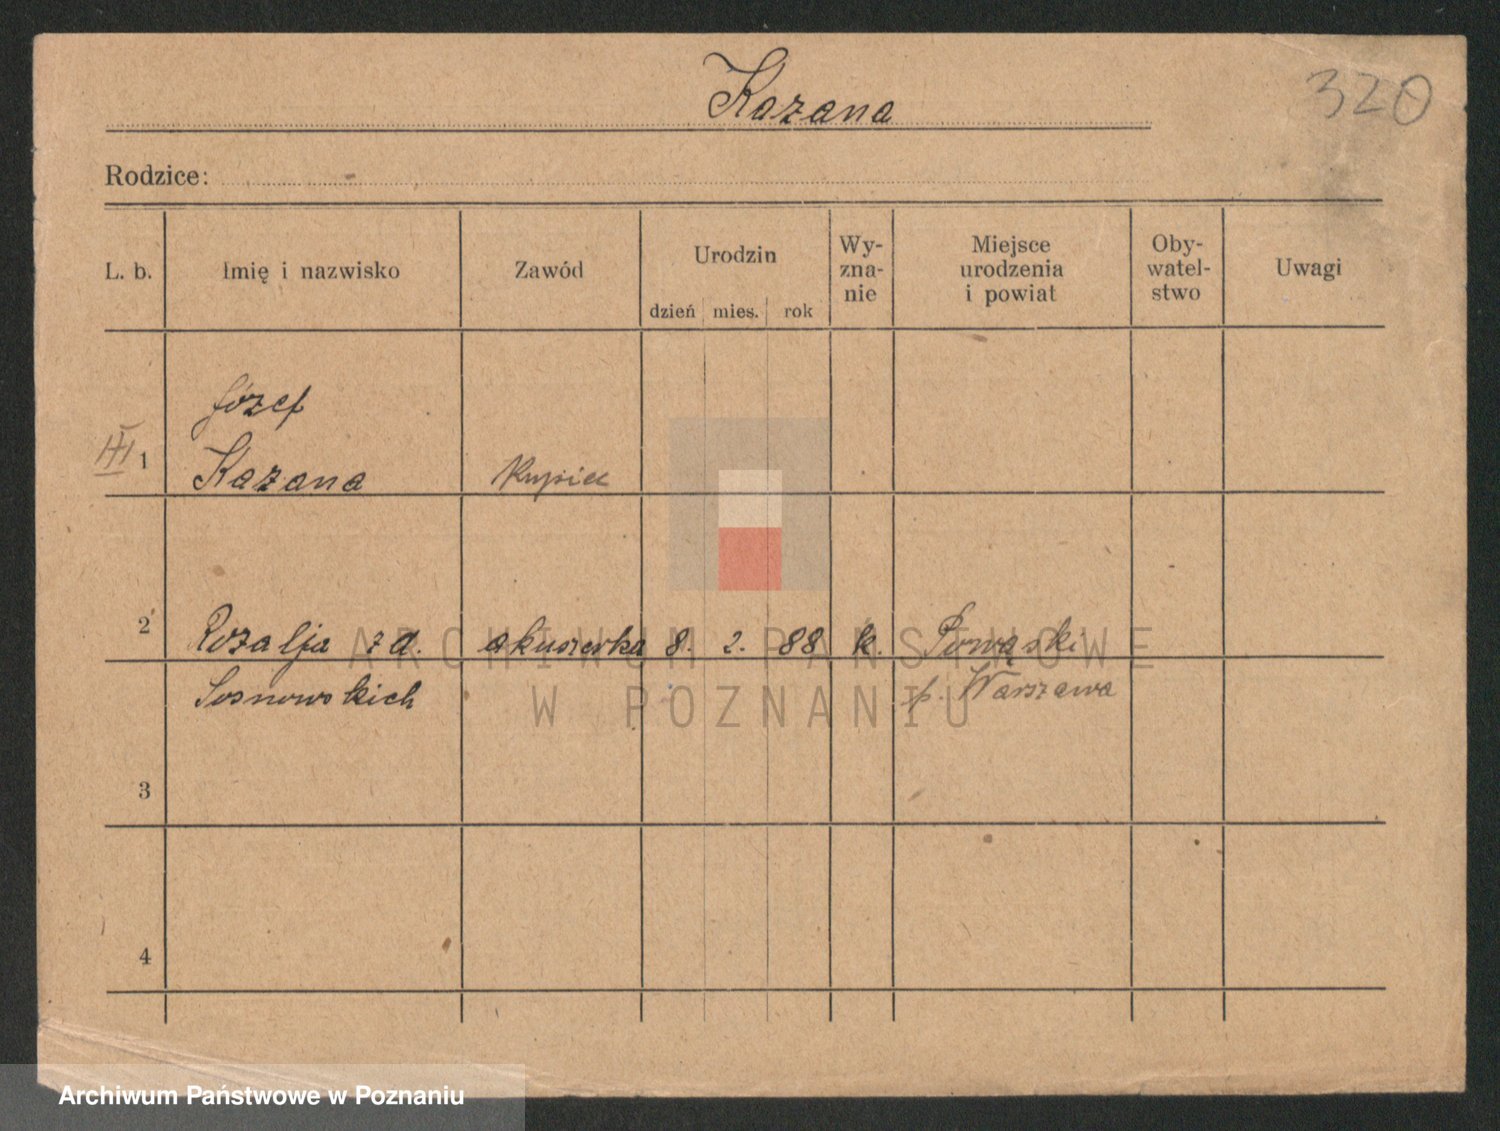 Kazana
320
Rodzice:
L. b.
Imię i nazwisko
Zawód
Urodzin
dzień mies. rok
Wy-
zna-
nie
Miejsce
urodzenia
i powiat
Oby-
watel-
stwo
Uwagi
Józef
1 Kazana Kupiec
2 Rozalja z d. akuszerka 8. 2. 88 k. Powąski
Sosnowskich p. Warszawa
3
4
ARCHIWUM PAŃSTWOWE
W POZNANIU
Archiwum Państwowe w Poznaniu